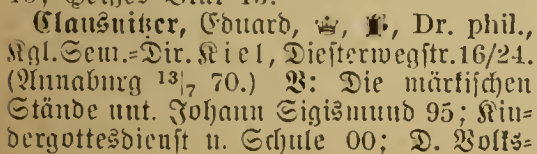 Clausnitzer, Eduard, Dr. phil.,
Kgl. Sem.=Dir. Kiel, Diesterwegstr. 16/24.
(Annaburg 13|7 70.) V: Die märkischen
Stände unt. Johann Sigismund 95; Kin=
dergottesdienst u. Schule 00; D. Volks=